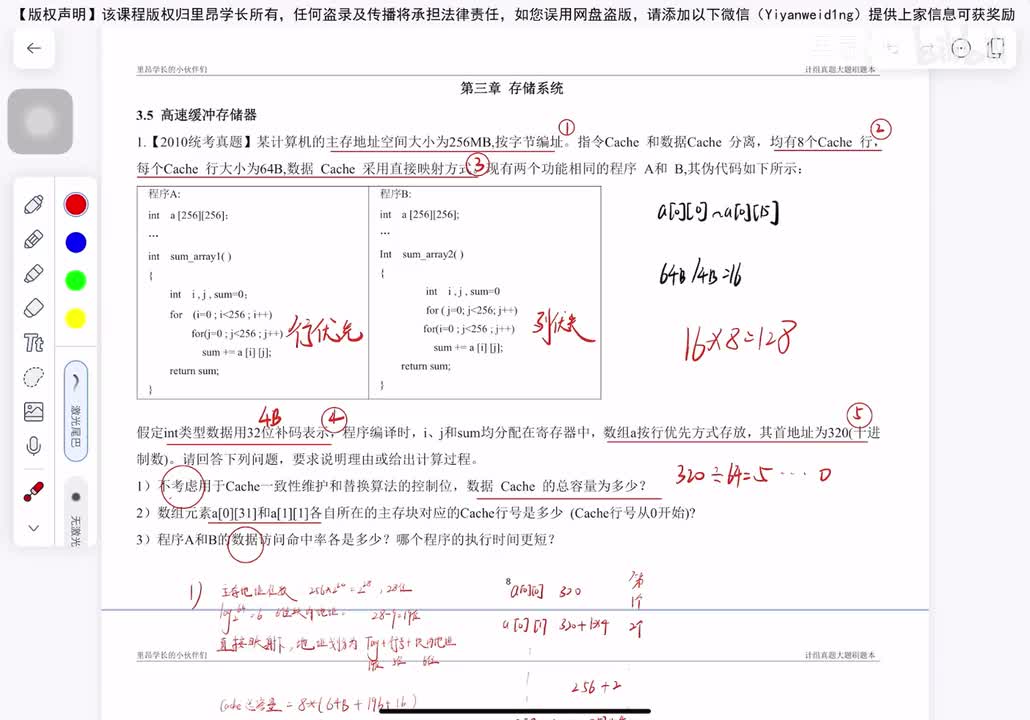 【版权声明】该课程版权归里昂学长所有，任何盗录及传播将承担法律责任，如您误用网盘盗版，请添加以下微信（Yiyanweid1ng）提供上家信息可获奖励
里昂学长的小伙伴们 计组真题大题刷题本
第三章 存储系统
3.5 高速缓冲存储器
1.【2010统考真题】某计算机的主存地址空间大小为256MB,按字节编址。指令Cache 和数据Cache 分离，均有8个Cache 行，
① ②
每个Cache 行大小为64B,数据 Cache 采用直接映射方式。现有两个功能相同的程序 A和 B,其伪代码如下所示：
③
程序A:
int a [256][256];
…
int sum_array1( )
{
int i , j , sum=0;
for (i=0 ; i<256 ; i++)
for(j=0 ; j<256 ; j++)
sum += a [i] [j];
return sum;
}
行优先
程序B:
int a [256][256];
…
Int sum_array2( )
{
int i , j , sum=0
for ( j=0; j<256; j++)
for(i=0 ; j<256 ; j++)
sum += a [i] [j];
return sum;
}
列优先
a[0][0]~a[0][15]
64B/4B=16
16×8=128
4B ④ ⑤
假定int类型数据用32位补码表示，程序编译时，i、j和sum均分配在寄存器中，数组a按行优先方式存放，其首地址为320(十进
制数)。请回答下列问题，要求说明理由或给出计算过程。
320÷64=5…0
1）不考虑用于Cache一致性维护和替换算法的控制位，数据 Cache 的总容量为多少?
2）数组元素a[0][31]和a[1][1]各自所在的主存块对应的Cache行号是多少 (Cache行号从0开始)?
3）程序A和B的数据访问命中率各是多少？哪个程序的执行时间更短?
1) 主存地址位数 256×2²⁰=2²⁸，28位
8
a[0][0] 320
28-9=19位
a[0][1] 320+1×4 2个
直接映射下，地址划分为 Tag+行号+块内地址
里昂学长的小伙伴们 计组真题大题刷题本
19位 3位 6位
256+2
Cache总容量=8×(64B+19b+1b)
Tt
激光尾巴
无激光